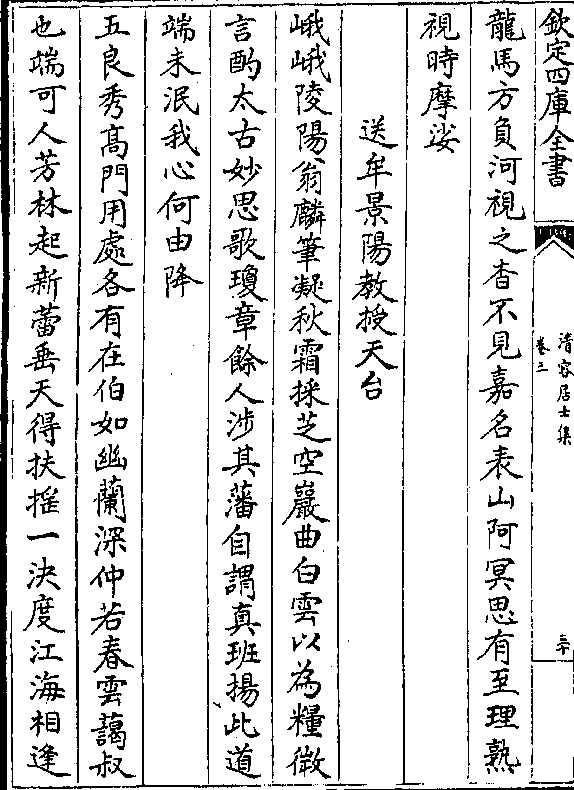 欽定四庫全書
清容居士集
卷三
三十
龍馬方負河視之杳不見嘉名表山阿冥思有至理熟
視時摩挲
送牟景陽教授天台
峨峨陵陽翁麟筆凝秋霜採芝空巖曲白雲以為糧微
言酌太古妙思歌瓊章餘人涉其藩自謂真班揚此道
端未泯我心何由降
五良秀髙門用處各有在伯如幽蘭深仲若春雲藹叔
也端可人芳林起新蕾垂天得扶揺一決度江海相逢